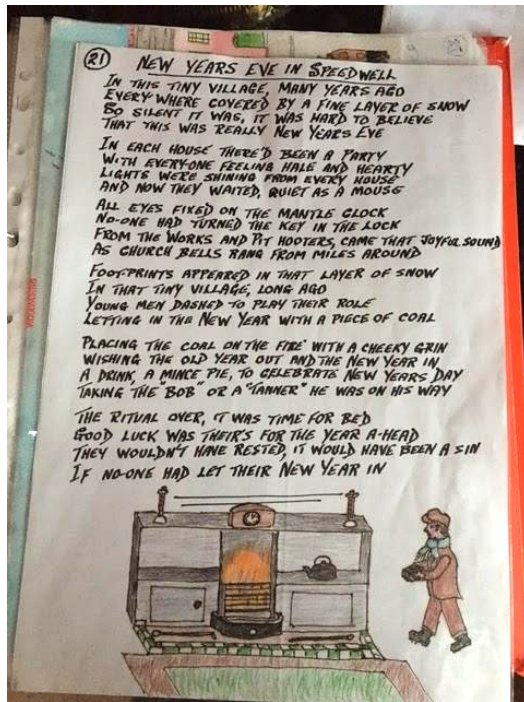 21
NEW YEARS EVE IN SPEEDWELL
IN THIS TINY VILLAGE, MANY YEARS AGO
EVERY WHERE COVERED BY A FINE LAYER OF SNOW
SO SILENT IT WAS, IT WAS HARD TO BELIEVE
THAT THIS WAS REALLY NEW YEARS EVE
IN EACH HOUSE THERE'D BEEN A PARTY
WITH EVERY-ONE FEELING HALE AND HEARTY
LIGHTS WERE SHINING FROM EVERY HOUSE
AND NOW THEY WAITED, QUIET AS A MOUSE
ALL EYES FIXED ON THE MANTLE CLOCK
NO-ONE HAD TURNED THE KEY IN THE LOCK
FROM THE WORKS AND PIT HOOTERS, CAME THAT JOYFUL SOUND
AS CHURCH BELLS RANG FROM MILES AROUND
FOOT-PRINTS APPEARED IN THAT LAYER OF SNOW
IN THAT TINY VILLAGE, LONG AGO
YOUNG MEN DASHED TO PLAY THEIR ROLE
LETTING IN THE NEW YEAR WITH A PIECE OF COAL
PLACING THE COAL ON THE FIRE WITH A CHEEKY GRIN
WISHING THE OLD YEAR OUT AND THE NEW YEAR IN
A DRINK, A MINCE PIE, TO CELEBRATE NEW YEARS DAY
TAKING THE "BOB" OR A "TANNER" HE WAS ON HIS WAY
THE RITUAL OVER, IT WAS TIME FOR BED
GOOD LUCK WAS THEIR'S FOR THE YEAR A-HEAD
THEY WOULDN'T HAVE RESTED, IT WOULD HAVE BEEN A SIN
IF NO-ONE HAD LET THEIR NEW YEAR IN